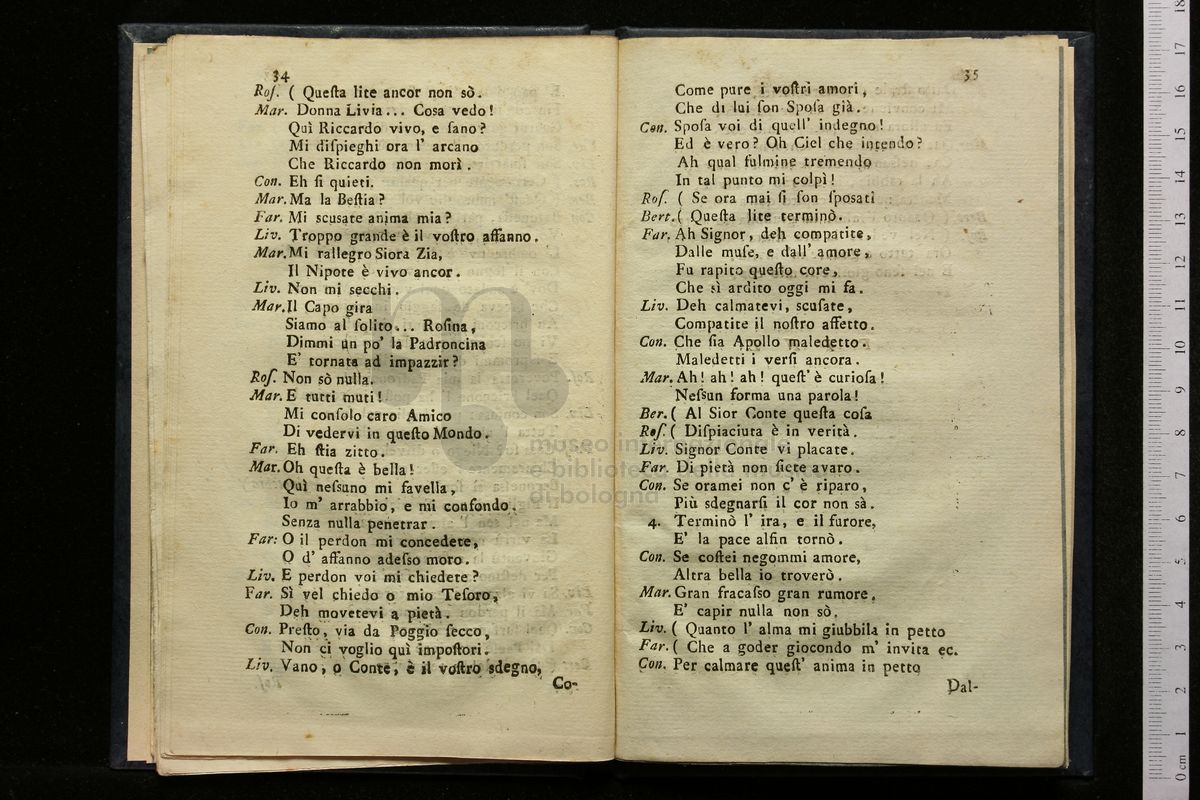 34
Roſ. ( Queſta lite ancor non sò.
Mar. Donna Livia... Cosa vedo!
Quì Riccardo vivo, e ſano?
Mi diſpieghi ora l' arcano
Che Riccardo non morì.
Con. Eh ſi quieti.
Mar. Ma la Beſtia?
Far. Mi scusate anima mia?
Liv. Troppo grande è il voſtro affanno.
Mar. Mi rallegro Siora Zia,
Il Nipote è vivo ancor.
Liv. Non mi secchi.
Mar. Il Capo gira
Siamo al ſolito... Roſina,
Dimmi un po' la Padroncina
E' tornata ad impazzir?
Roſ. Non sò nulla.
Mar. E tutti muti!
Mi conſolo caro Amico
Di vedervi in queſto Mondo.
Far. Eh ſtia zitto.
Mar. Oh queſta è bella!
Quì neſsuno mi favella,
Io m' arrabbio, e mi confondo,
Senza nulla penetrar.
Far: O il perdon mi concedete,
O d' affanno adeſso moro.
Liv. E perdon voi mi chiedete?
Far. Sì vel chiedo o mio Teſoro,
Deh movetevi a pietà.
Con. Preſto, via da Poggio ſecco,
Non ci voglio quì impoſtori.
Liv. Vano, o Conte, è il voſtro sdegno,
Co-
35
Come pure i voſtri amori,
Che di lui ſon Spoſa già.
Con. Spoſa voi di quell' indegno!
Ed è vero? Oh Ciel che intendo?
Ah qual fulmine tremendo
In tal punto mi colpì!
Roſ. ( Se ora mai ſi ſon ſpoſati
Bert. ( Queſta lite terminò.
Far. Ah Signor, deh compatite,
Dalle muſe, e dall' amore,
Fu rapito queſto core,
Che sì ardito oggi mi fa.
Liv. Deh calmatevi, scuſate,
Compatite il noſtro affetto.
Con. Che ſia Apollo maledetto.
Maledetti i verſi ancora.
Mar. Ah! ah! ah! queſt' è curioſa!
Neſsun forma una parola!
Ber. ( Al Sior Conte queſta coſa
Roſ. ( Diſpiaciuta è in verità.
Liv. Signor Conte vi placate.
Far. Di pietà non ſiete avaro.
Con. Se oramei non c' è riparo,
Più sdegnarſi il cor non sà.
4. Terminò l' ira, e il furore,
E' la pace alfin tornò.
Con. Se coſtei negommi amore,
Altra bella io troverò.
Mar. Gran fracaſso gran rumore,
E' capir nulla non sò.
Liv. ( Quanto l' alma mi giubbila in petto
Far. ( Che a goder giocondo m' invita ec.
Con. Per calmare queſt' anima in petto
Dal-
museo internazionale
e biblioteca della musica
di bologna
0 cm 1 2 3 4 5 6 7 8 9 10 11 12 13 14 15 16 17 18